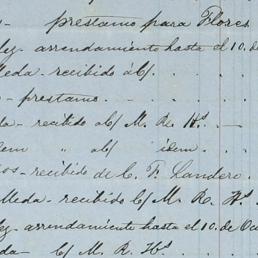 - prestamo para Flores
ley- arrendamiento hasta el 10. de
lleda- recibido á b/ . . .
- prestamo. - . . .
da- recibido a b/ M. R. Hs. —
dem " ab/ idem. .
os- recibido de C. F. Landero.
lleda- recibido b/ M. R. Hs.
ley- arrendamiento hasta el 10. de Oc
da- b/ M. R. Hs.